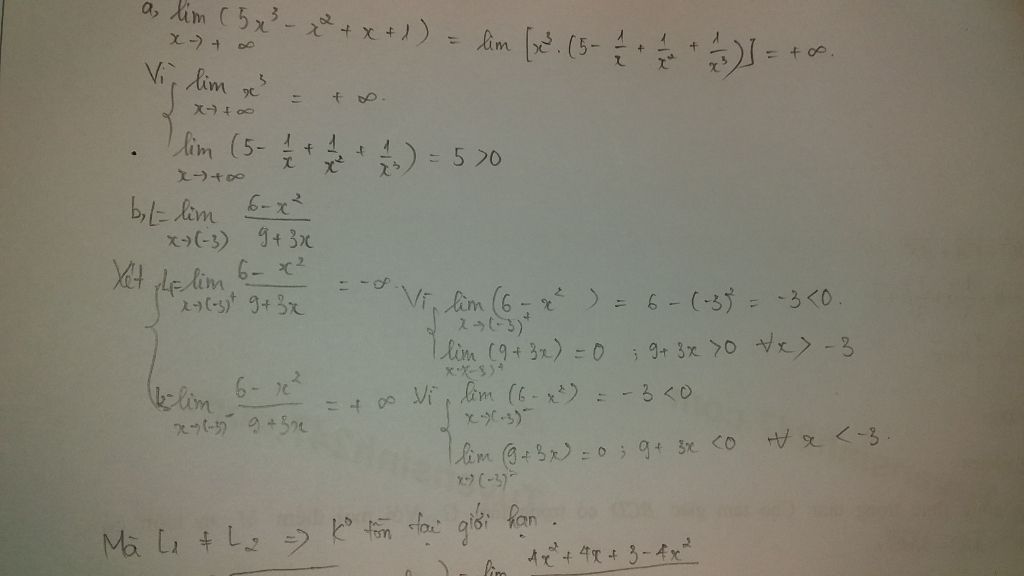 a, lim (5x³ - x² + x + 1) = lim [x³. (5 - 1/x + 1/x² + 1/x³)] = + ∞.
x → + ∞
Vì { lim x³ = + ∞.
x → + ∞
lim (5 - 1/x + 1/x² + 1/x³) = 5 > 0
x → + ∞
b, L = lim (6 - x²)/(9 + 3x)
x → (-3)
Xét { L₁ = lim (6 - x²)/(9 + 3x) = - ∞. Vì { lim (6 - x²) = 6 - (-3)² = -3 < 0.
x → (-3)⁺ x → (-3)⁺
lim (9 + 3x) = 0 ; 9 + 3x > 0 ∀x > -3
x → (-3)⁺
L₂ = lim (6 - x²)/(9 + 3x) = + ∞ Vì { lim (6 - x²) = -3 < 0
x → (-3)⁻ x → (-3)⁻
lim (9 + 3x) = 0 ; 9 + 3x < 0 ∀ x < -3.
x → (-3)⁻
Mà L₁ ≠ L₂ => K° tồn tại giới hạn.
) = lim 4x² + 4x + 3 - 4x²